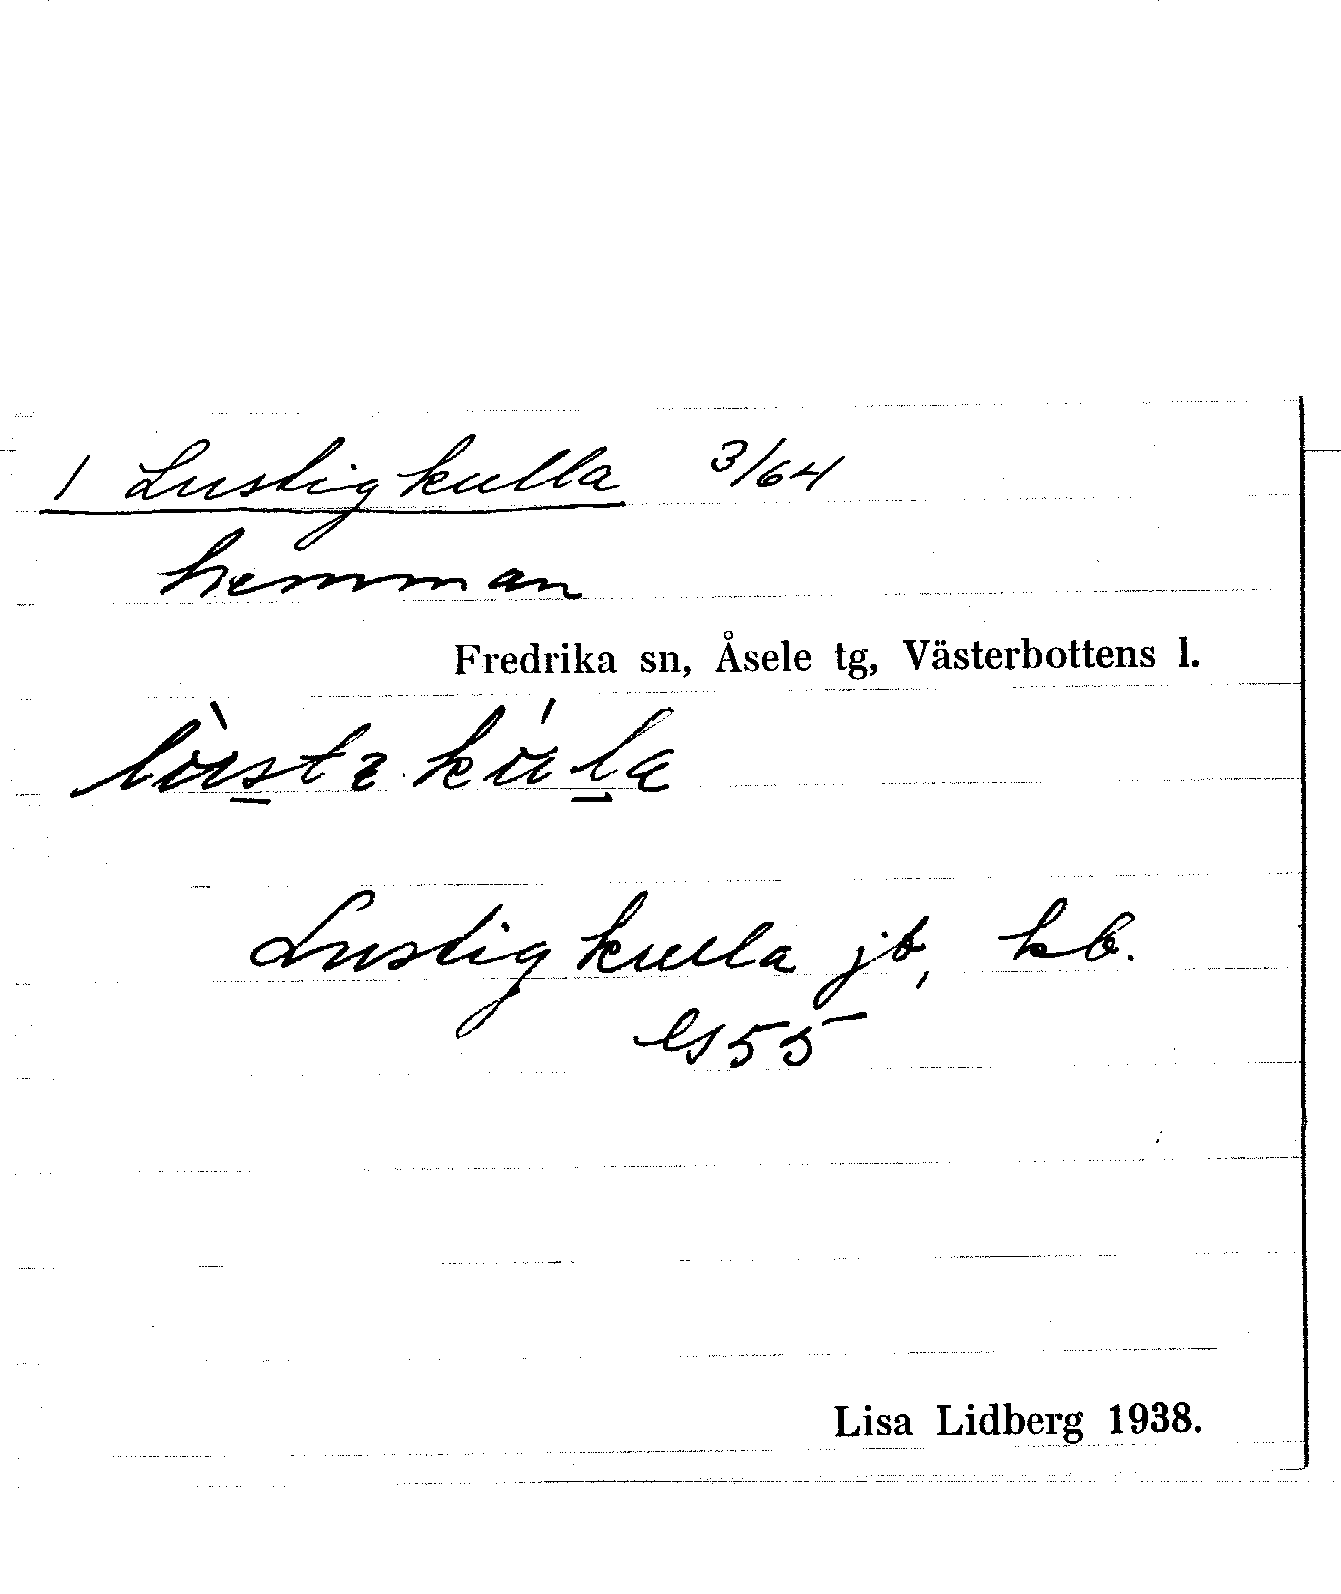 1 Lustigkulla 3/64
hemman
Fredrika sn, Åsele tg, Västerbottens l.
Lustigkulla jb, kb.
GS 55
Lisa Lidberg 1938.